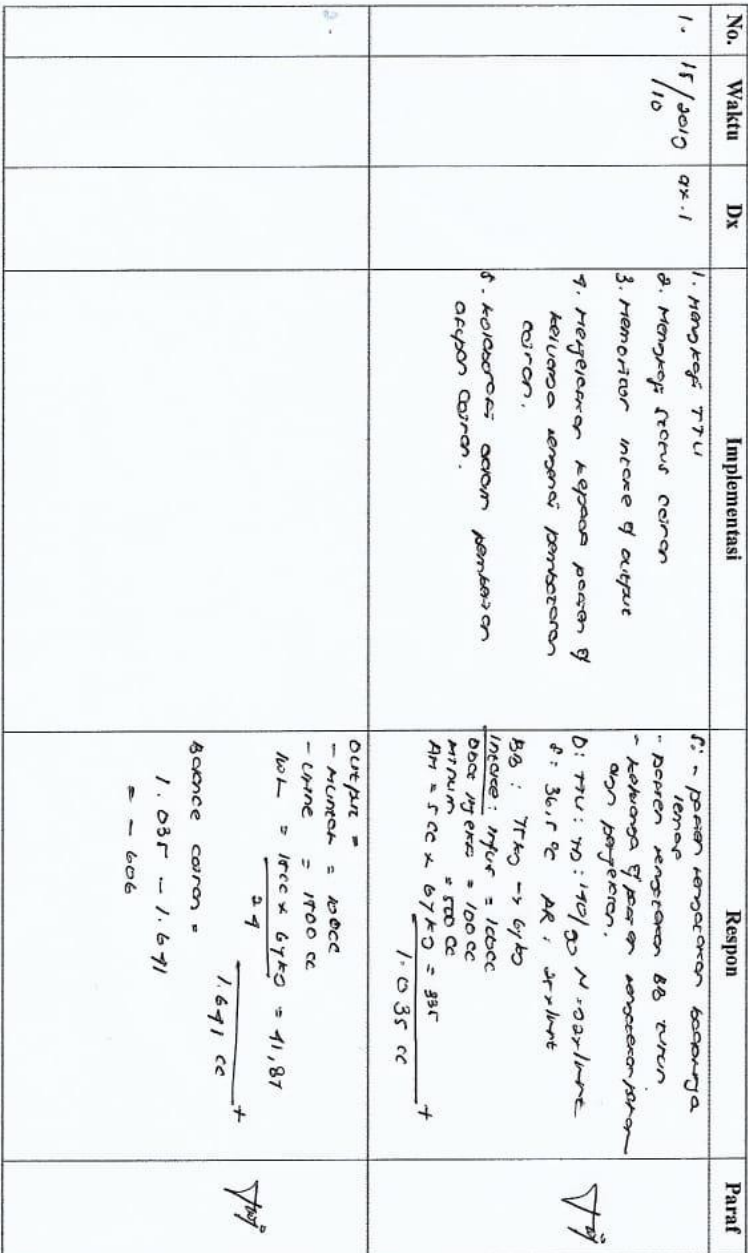 No. Waktu Dx Implementasi Respon Paraf
1. 15/2010 dx.1
/10
1. Mengkaji TTV
2. Mengkaji status cairan
3. Memonitor intake & output
4. Menjelaskan kepada pasien &
keluarga mengenai pembatasan
cairan.
5. Kolaborasi dalam pemberian
asupan cairan.
S: - pasien mengatakan badannya
lemas
- pasien mengatakan BB turun
- keluarga & pasien mengatakan paham
dan penjelasan.
O: TTV: TD: 140/90 N: 92x/mnt
S: 36,5 °C RR: 24x/mnt
BB: 75 kg -> 67 kg
Intake: infus = 100cc
Obat injeksi = 100 cc
Minum = 500 cc
AM = 5 cc x 67 kg = 335
1.035 cc +
2.
Output =
- Muntah = 100cc
- Urine = 1500 cc
IWL = 15cc x 67 kg = 41,87
24
1.641 cc +
Balance cairan =
1.035 - 1.641
= - 606